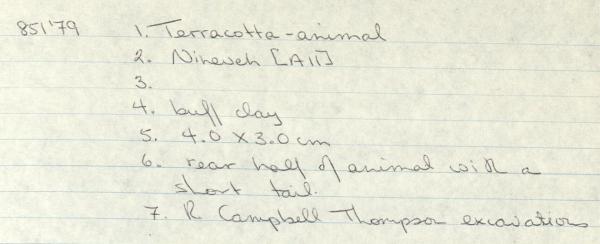 851'79 1. Terracotta-animal
2. Nineveh [A11]
3.
4. buff clay
5. 4.0 x 3.0 cm
6. rear half of animal with a
short tail.
7. R Campbell Thompson excavations